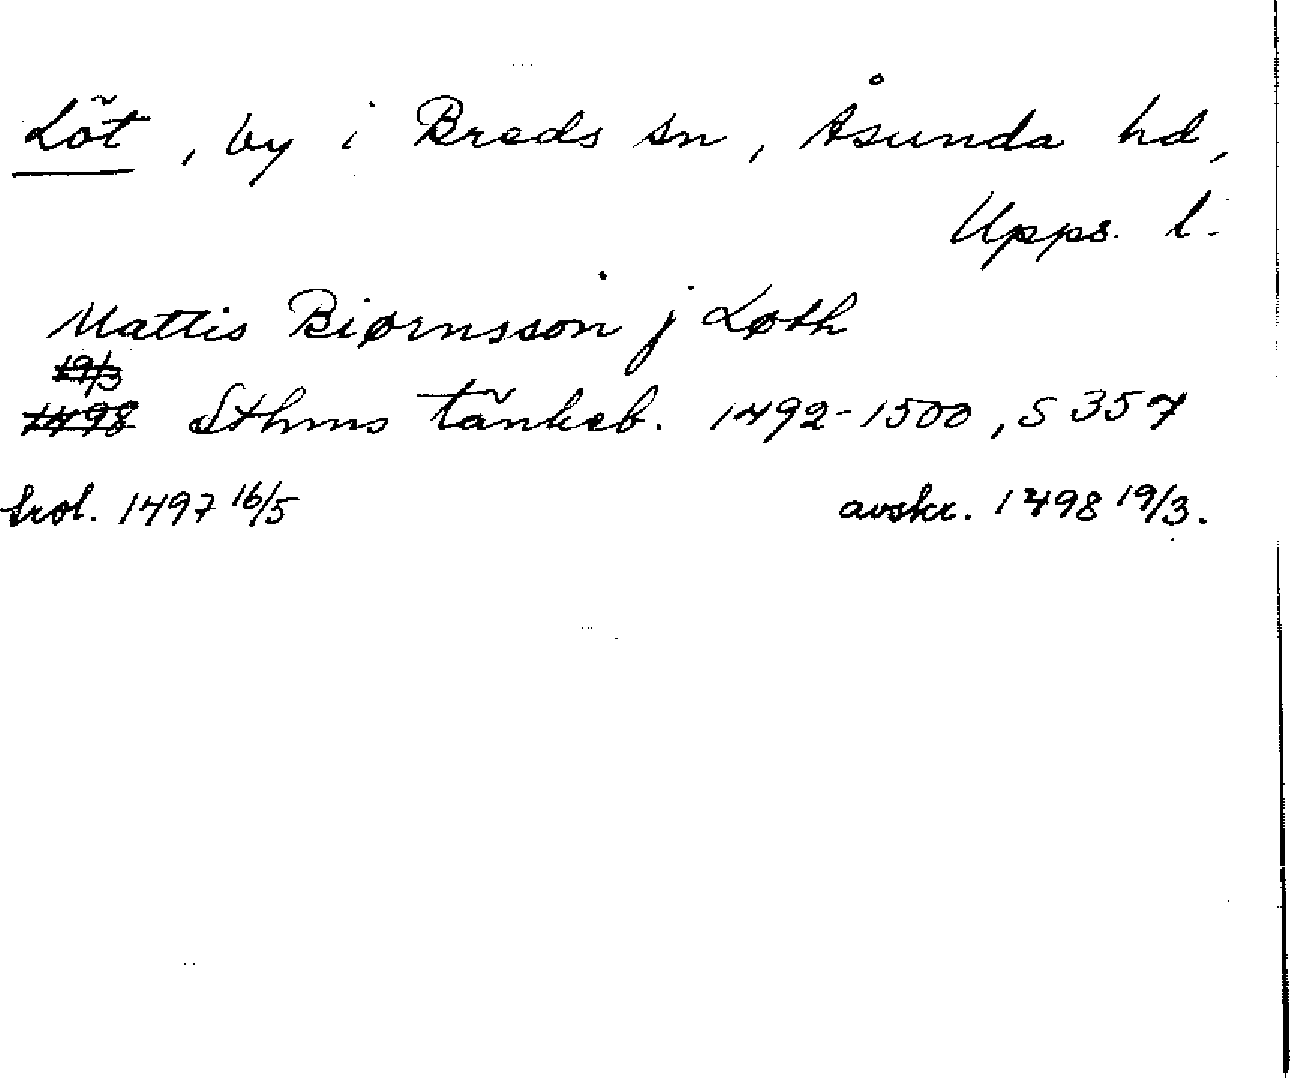 Löt, by i Breds sn, Åsunda hd,
Upps. l.
Mattis Biørnsson j Løth
19/3
1498 Sthms tänkeb. 1492-1500, S 357
trol. 1497 16/5 avskr. 1498 19/3.